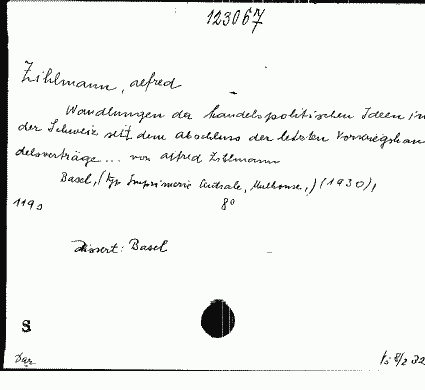 123067
Zihlmann, Alfred
Wandlungen der handelspolitischen Ideen in
der Schweiz seit dem Abschluss der letzten Vorkriegshan
delsverträge... von Alfred Zihlmann
Basel, (typ. Imprimerie Centrale, Mulhouse,) (1930),
119 s 8°
Dissert: Basel
S